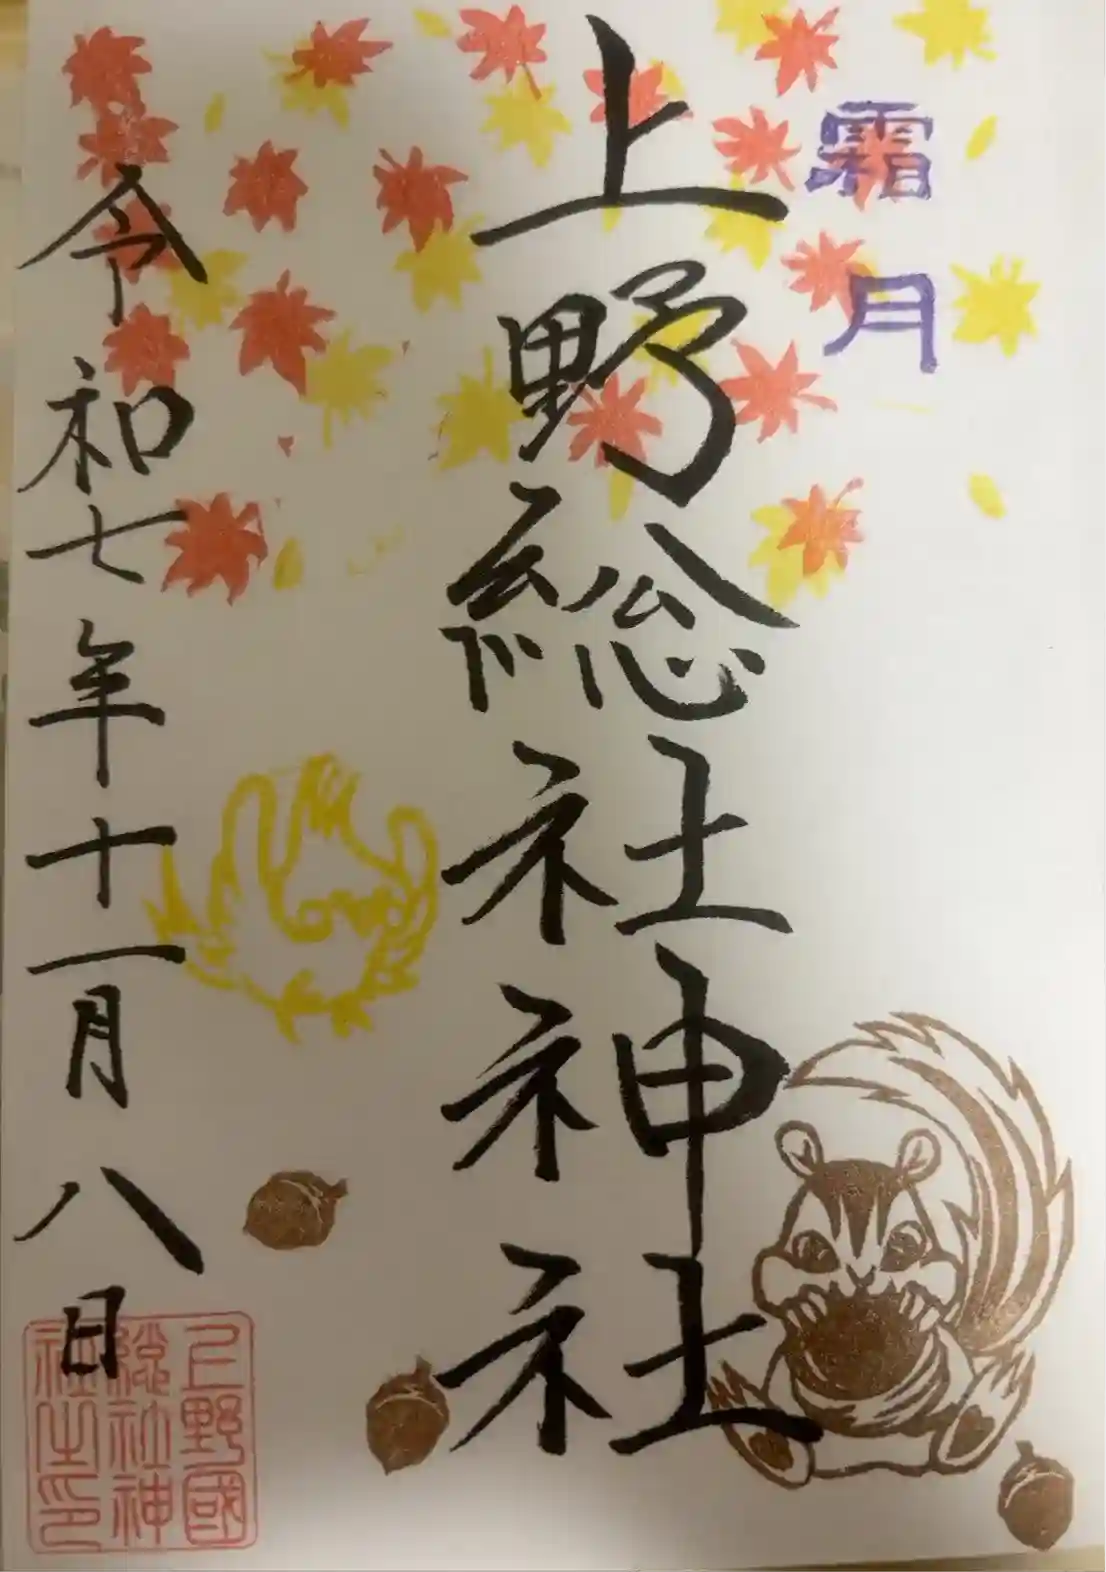 霜月
上野総社神社
令和七年十一月八日
上野國
総社神
社之印